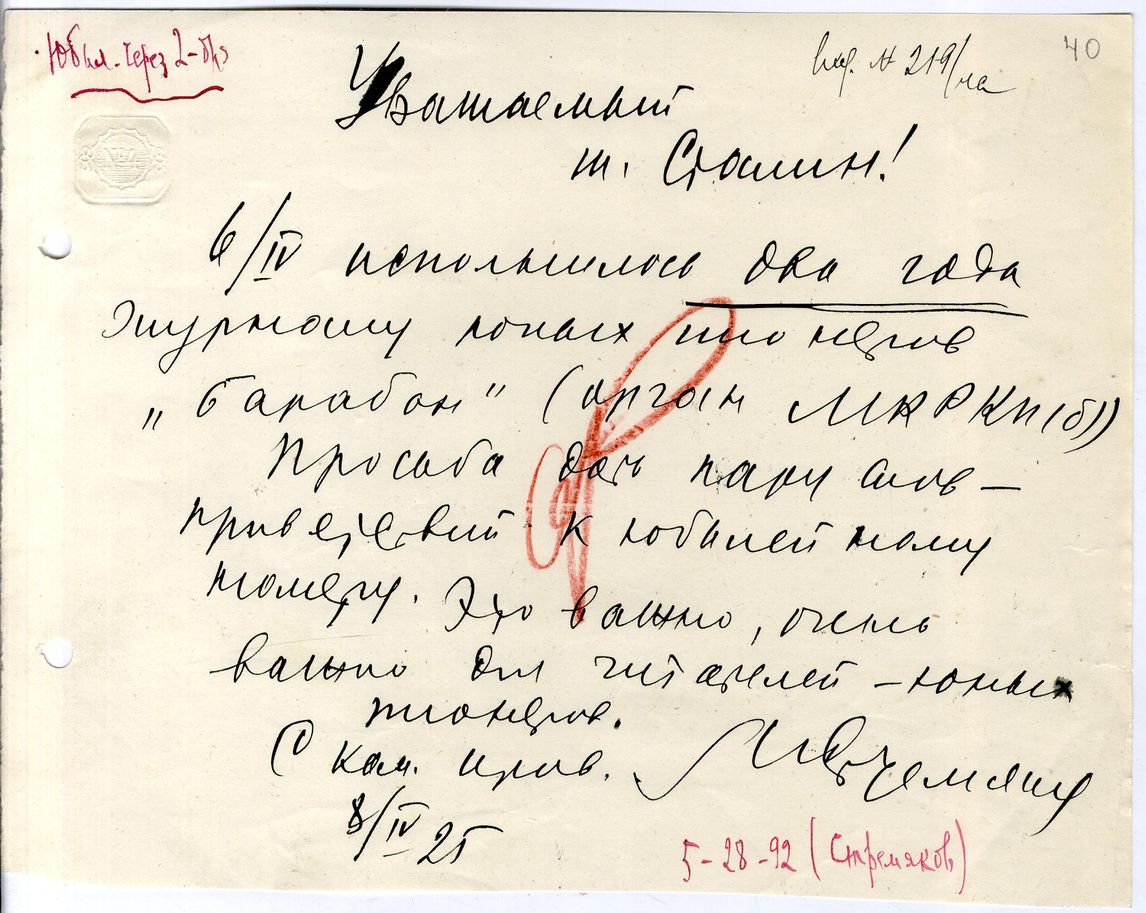 Юбил. через 2-❨
вхд. № 219/
40
Уважаемый
т. Сталин!
6/IV исполнилось два года
журналу юных пионеров
„Барабан" (орган МК РКП(б))
Просьба дать пару слов –
приветствий к юбилейному
номеру. Это важно, очень
важно для читателей – юных
пионеров.
С ком. прив.
8/IV 25
5-28-92 (Стремяков)